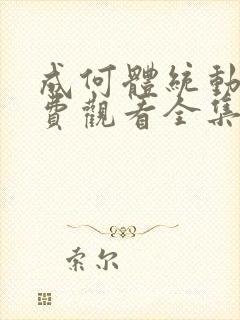 成何體統動
費觀看全集
索尔